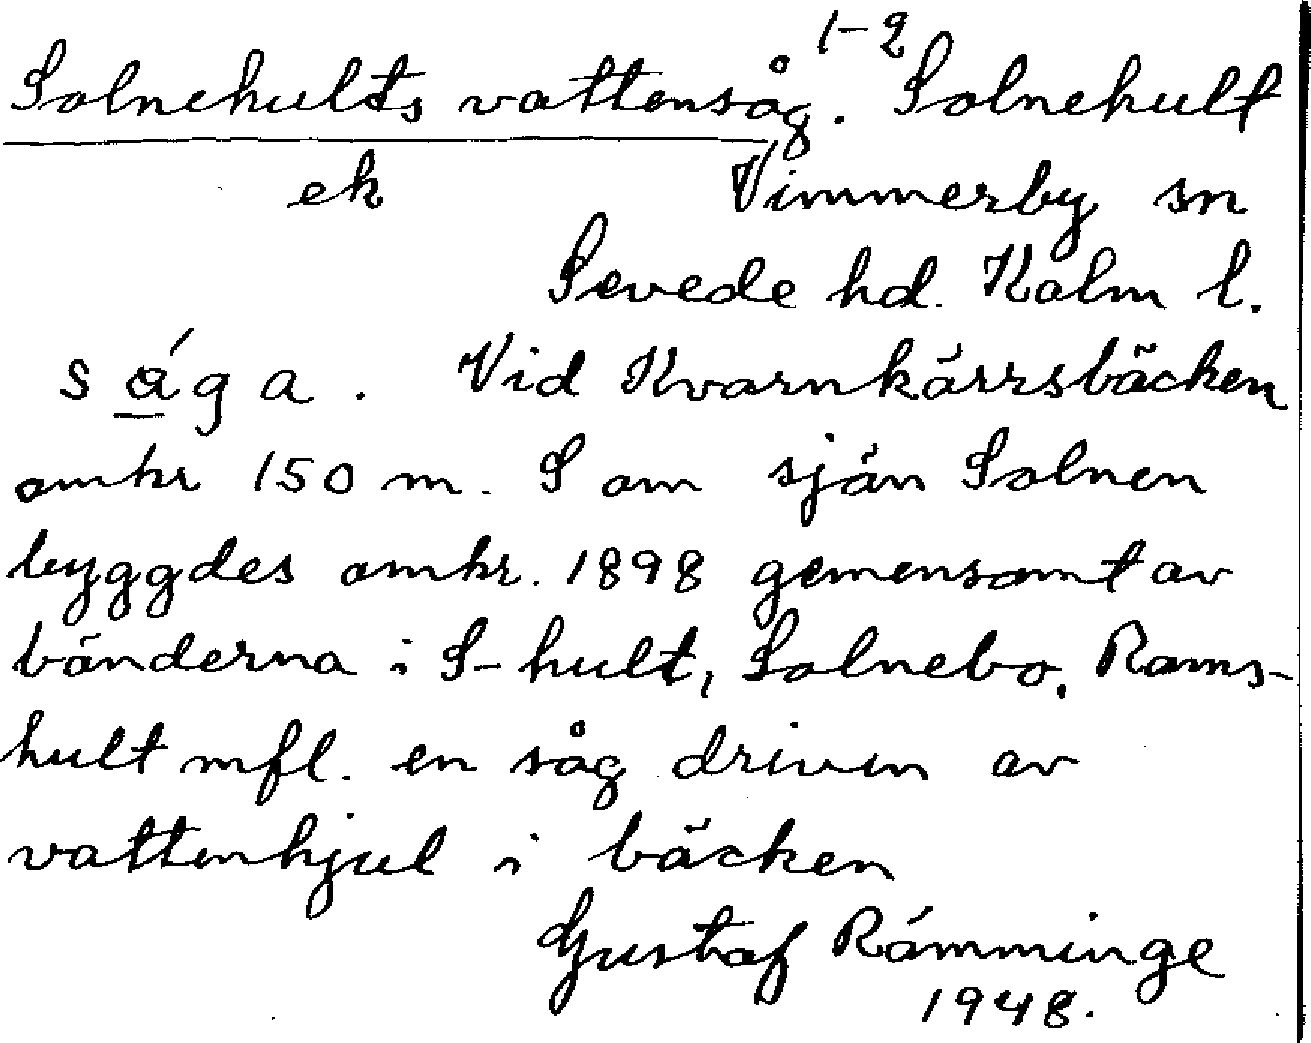 Solnehults vattensåg. 1-2 Solnehult
ek Vimmerby sn
Sevede hd. Kalm l.
sága. Vid Kvarnkärrsbäcken
omkr 150 m. S om sjön Solnen
byggdes omkr. 1898 gemensamt av
bönderna i S-hult, Solnebo, Rams-
hult mfl. en såg driven av
vattenhjul i bäcken
Gustaf Rámminge
1948.